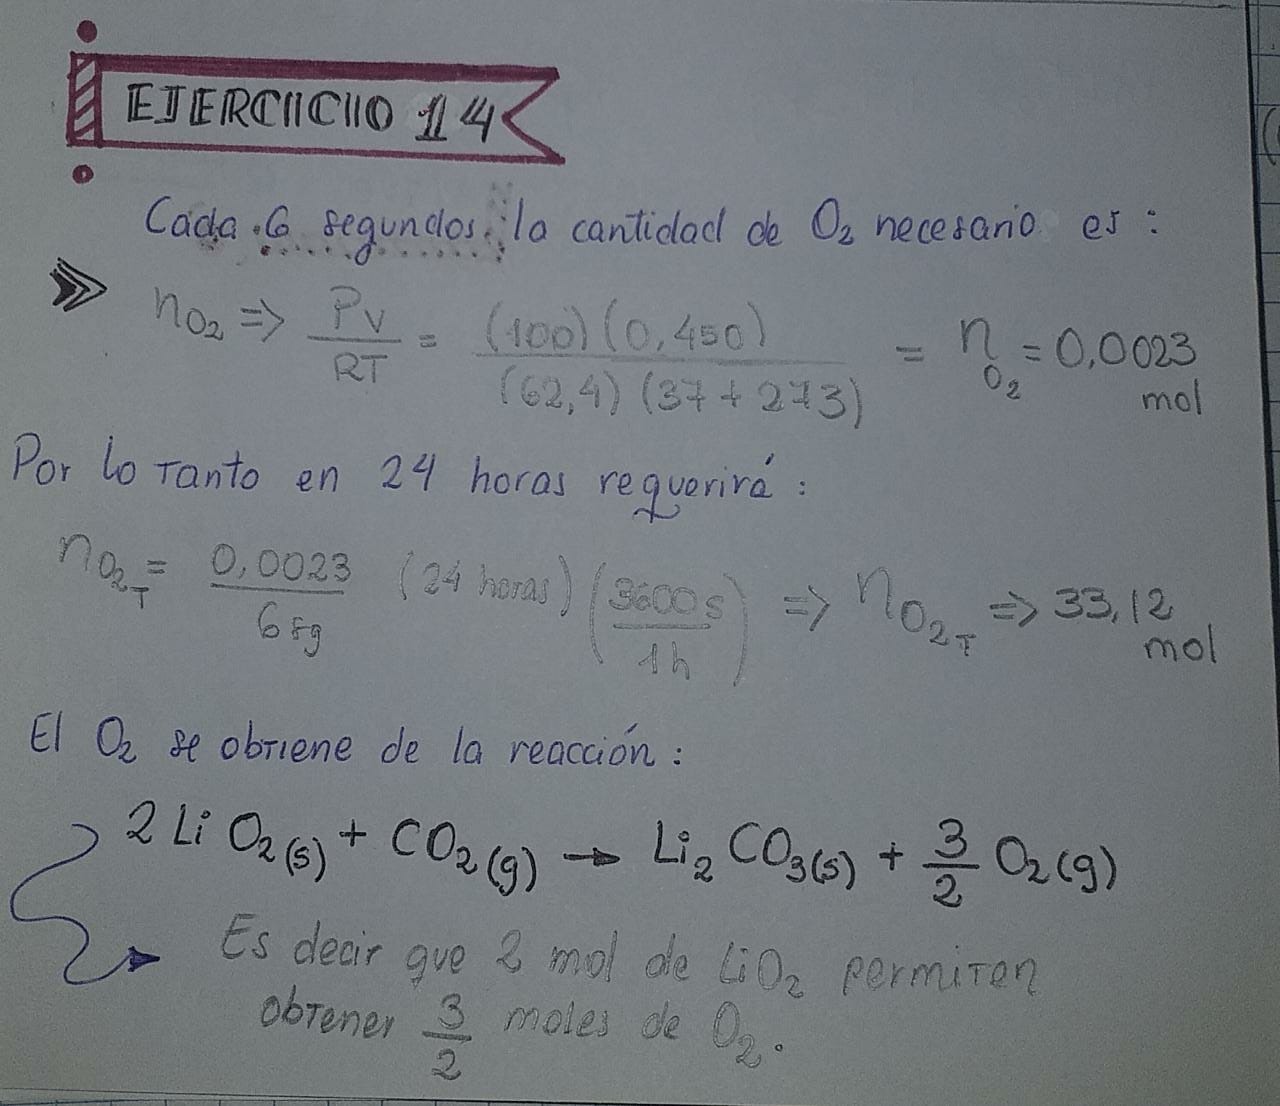 EJERCICIO 14
Cada 6 segundos la cantidad de O₂ necesario es:
nO₂ => PV/RT = (100)(0,450)/(62,4)(37+273) = nO₂ = 0,0023 mol
Por lo tanto en 24 horas requerirá:
nO₂T = 0,0023/6sg (24 horas) (3600s/1h) => nO₂T => 33,12 mol
El O₂ se obtiene de la reacción:
2 Li O₂(s) + CO₂(g) → Li₂ CO₃(s) + 3/2 O₂(g)
Es decir que 2 mol de LiO₂ permiten
obtener 3/2 moles de O₂.